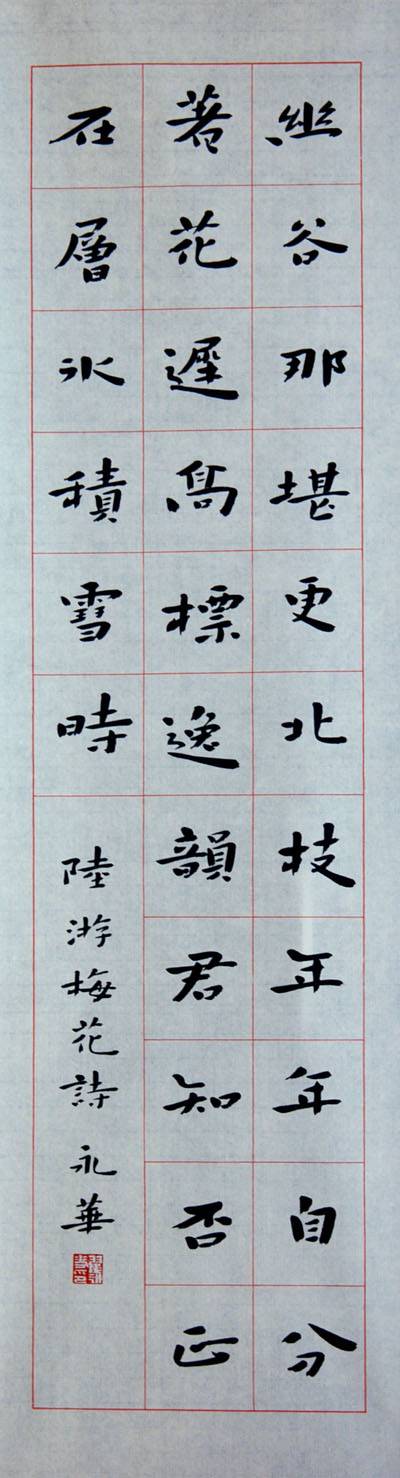 幽谷那堪更北技年年自分
著花遲高標逸韻君知否正
在層冰積雪時
陸游梅花詩 永華